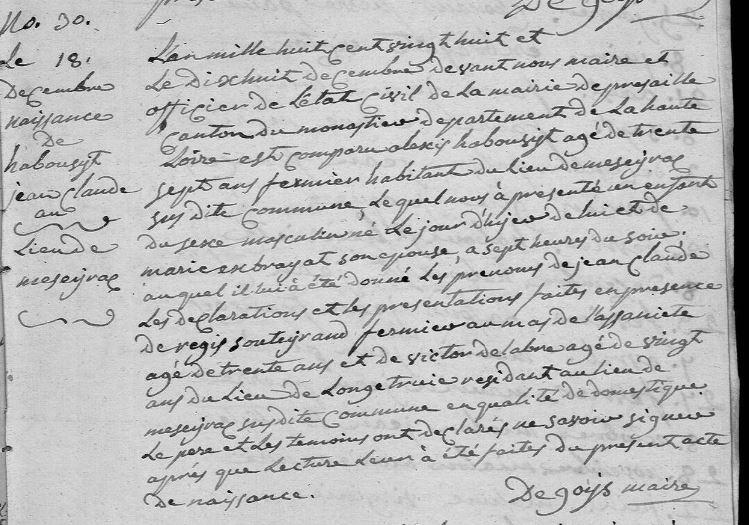 De gois
No. 30.
Le 18.
Decembre
naissance
De
habousit
jean Claude
au
Lieu de
meseyrac
L'an mille huit cent vingt huit et
Le Dixhuit decembre devant nous maire et
officier de L'état Civil de La mairie de presaille
Canton du monastier departement de La haute
Loire est comparu alexis habousit agé de trente
sept ans fermier habitant du Lieu de meseyrac
sus dite Commune, Lequel nous à presenté un enfant
du sexe masculin né Le jour d'hier de lui et de
marie exbrayat son epouse, a sept heures du soir.
au quel il lui à été donné Les prenoms de jean Claude
Les declarations et les presentations faites en presence
De regis souteyrand fermier au mas de l'assaniete
agé de trente ans et de victor delabre agé de vingt
ans du Lieu de Longetruie residant au lieu de
meseyrac sus dite commune en qualité de domestique
Le pere et Les temoins ont declarés ne savoir signer
aprés que Lecture Leur à été faites du present acte
De naissance.
De gois maire